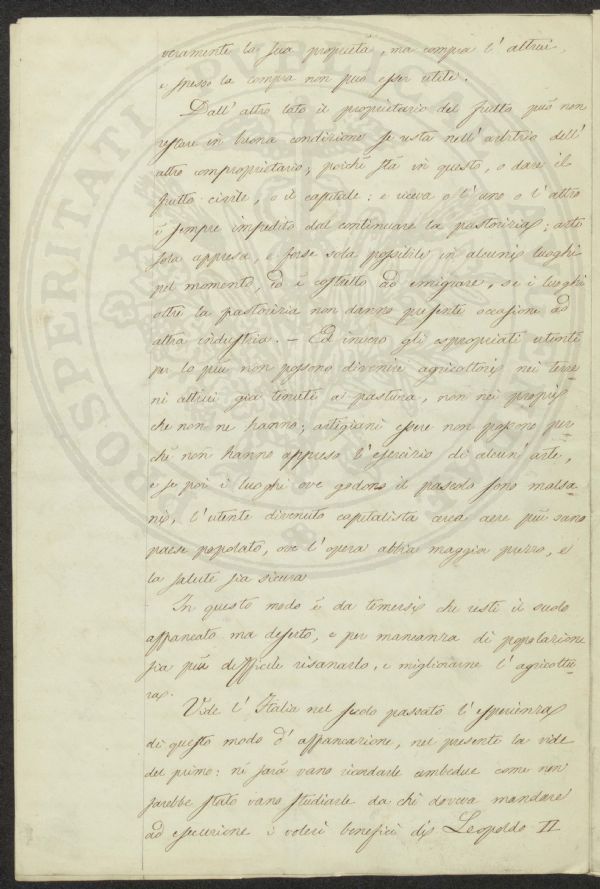 veramente la sua proprietà, ma compra l'altrui,
e spesso la compra non può esser utile.
Dall'altro lato il proprietario del frutto può non
restare in buona condizione se resta nell'arbitrio dell'
altro comproprietario; poichè stà in questo, o dare il
frutto civile, o il capitale: e riceva o l'uno o l'altro
è sempre impedito dal continuare la pastorizia; arte
sola appresa, e forse sola possibile in alcuni luoghi
pel momento, ed è costretto ad emigrare, se i luoghi
oltre la pastorizia non danno presente occasione ad
altra industria. — Ed invero gli espropriati utenti
per lo più non possono divenire agricoltori nei terre-
ni altrui già tenuti a pastura, non nei proprj
che non ne hanno; artigiani essere non possono per-
chè non hanno appreso l'esercizio di alcun'arte,
e se poi i luoghi ove godono il pascolo sono malsa-
ni, l'utente divenuto capitalista cerca aere più sano
paese popolato, ove l'opera abbia maggior prezzo, e
la salute sia sicura
In questo modo è da temersi che resti il suolo
affrancato ma deserto, e per mancanza di popolazione
sia più difficile risanarlo, e migliorarne l'agricoltu-
ra.
Vide l'Italia nel secolo passato l'esperienza
di questo modo d'affrancazione, nel presente la vide
del primo: nè sarà vano ricordarle ambedue come non
sarebbe stato vano studiarle da chi doveva mandare
ad esecuzione i voleri benefici di Leopoldo II
PROSPERITATI PUBLICAE